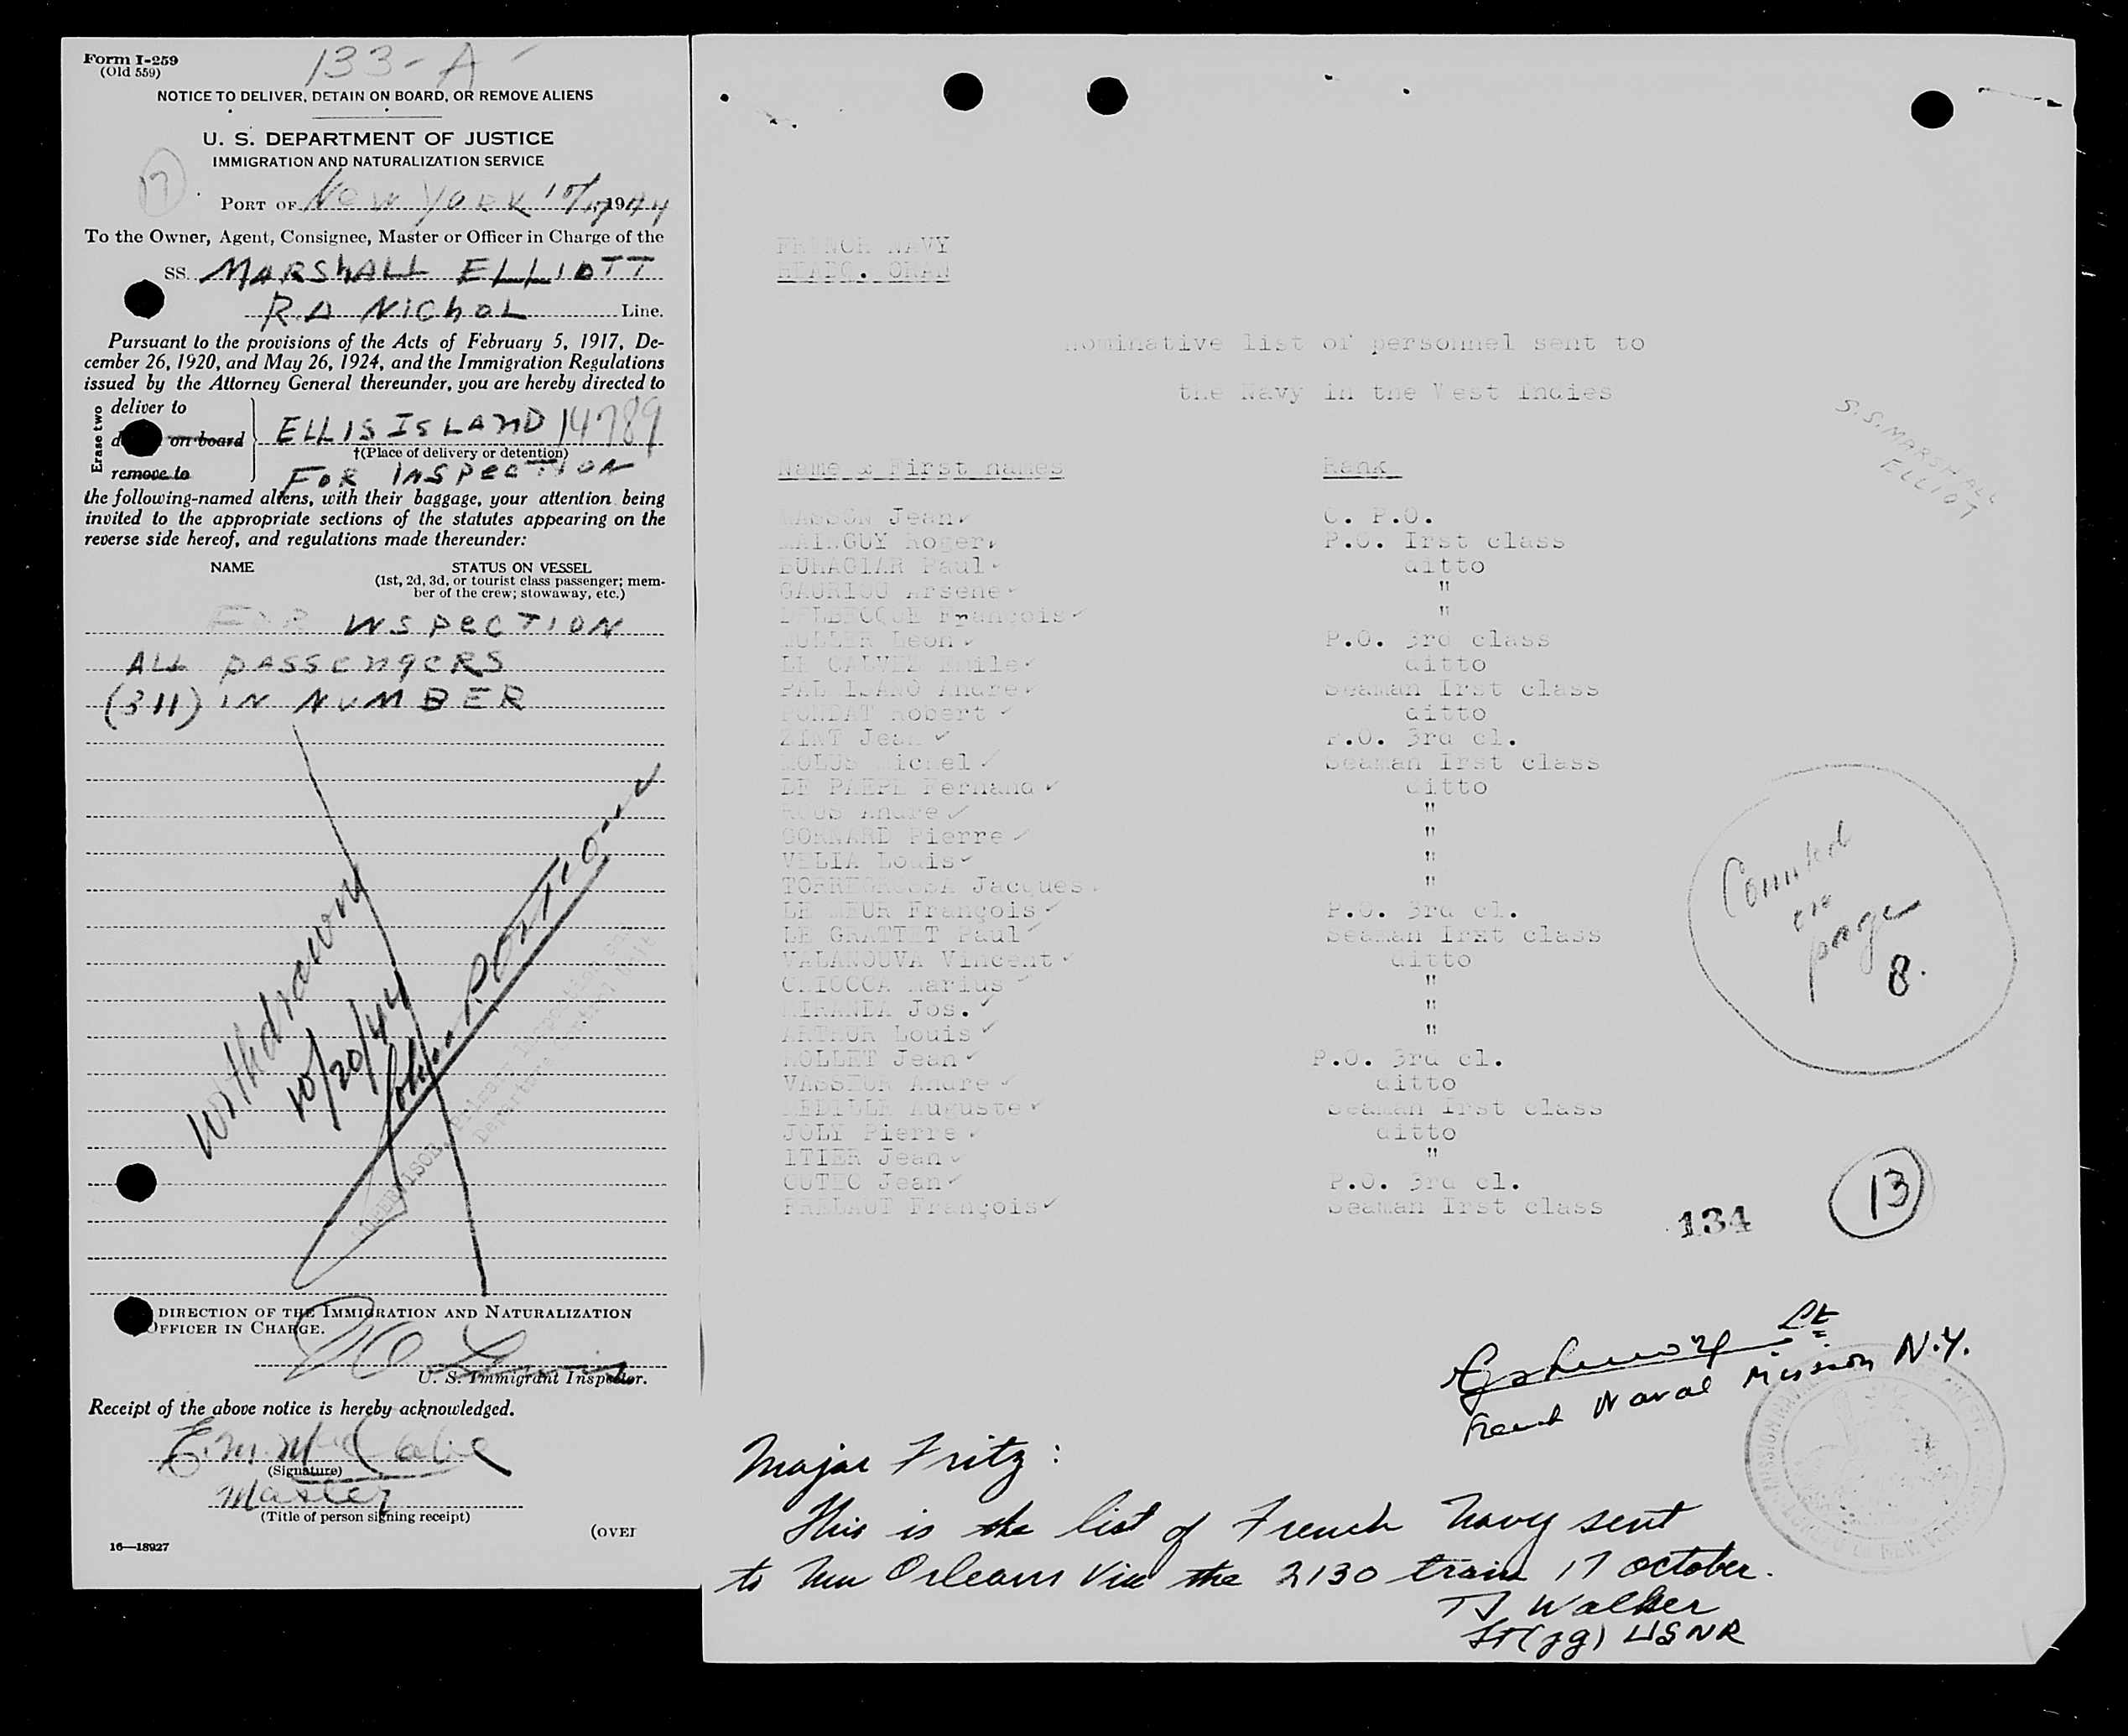 133-A
Form I-259
(Old 559)
NOTICE TO DELIVER, DETAIN ON BOARD, OR REMOVE ALIENS
U. S. DEPARTMENT OF JUSTICE
IMMIGRATION AND NATURALIZATION SERVICE
17
PORT OF NEW YORK 10/17, 1944
To the Owner, Agent, Consignee, Master or Officer in Charge of the
SS. MARSHALL ELLIOTT
R.A NICHOL Line.
Pursuant to the provisions of the Acts of February 5, 1917, De-
cember 26, 1920, and May 26, 1924, and the Immigration Regulations
issued by the Attorney General thereunder, you are hereby directed to
Erase two
deliver to
on board
remove to
ELLIS ISLAND 14789
†(Place of delivery or detention)
FOR INSPECTION
the following-named aliens, with their baggage, your attention being
invited to the appropriate sections of the statutes appearing on the
reverse side hereof, and regulations made thereunder:
NAME STATUS ON VESSEL
(1st, 2d, 3d, or tourist class passenger; mem-
ber of the crew; stowaway, etc.)
FOR INSPECTION
ALL PASSENGERS
(311) IN NUMBER
Withdrawn
10/20/44
DIRECTION OF THE IMMIGRATION AND NATURALIZATION
OFFICER IN CHARGE.
U. S. Immigrant Inspector.
Receipt of the above notice is hereby acknowledged.
(Signature)
Master
(Title of person signing receipt)
(OVER
16—18927
FRENCH NAVY
HEADQ. ORAN
Nominative list of personnel sent to
the Navy in the West Indies
S.S. MARSHALL
ELLIOT
Name & First names Rank
MASSON Jean C. P.O.
MAINGUY Roger P.O. Irst class
BUHAGIAR Paul ditto
GAURIOU Arsene "
DELBECQUE François "
MULLER Leon P.O. 3rd class
LE CALVEZ Emile ditto
PALISANO Andre Seaman Irst class
Robert ditto
ZINT Jean P.O. 3rd cl.
Michel Seaman Irst class
DE PAEPE Fernand ditto
ROUS Andre "
GONNARD Pierre "
VELIA Louis "
TORREGROSSA Jacques "
LE MEUR François P.O. 3rd cl.
LE GRATTET Paul Seaman Irxt class
VALANOUVA Vincent ditto
CHIOCCA Marius "
MIRANDA Jos. "
ARTHUR Louis "
Jean P.O. 3rd cl.
VASSEUR Andre ditto
Auguste Seaman Irst class
JOLY Pierre ditto
ITIER Jean "
CUTEC Jean P.O. 3rd cl.
François Seaman Irst class
Counted
on
page
8.
134
13
Lt
French Naval Mission N.Y.
Major Fritz:
This is the list of French Navy sent
to New Orleans via the 2130 train 17 October.
TJ Walker
Lt(jg) USNR